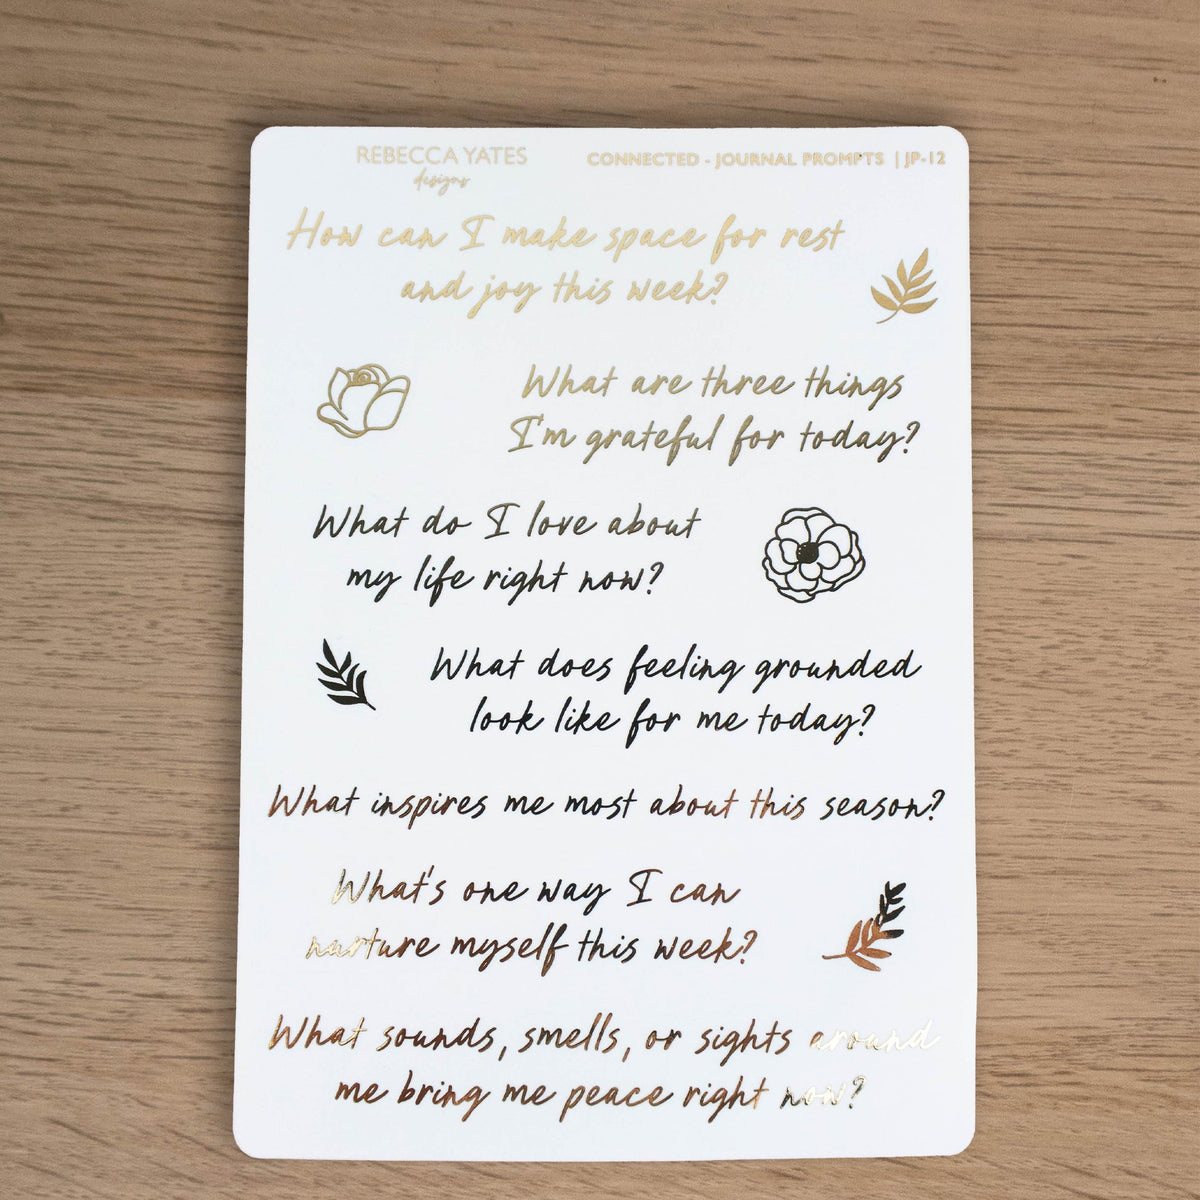 REBECCA YATES
designs
CONNECTED - JOURNAL PROMPTS | JP-12
How can I make space for rest
and joy this week?
What are three things
I'm grateful for today?
What do I love about
my life right now?
What does feeling grounded
look like for me today?
What inspires me most about this season?
What's one way I can
nurture myself this week?
What sounds, smells, or sights around
me bring me peace right now?